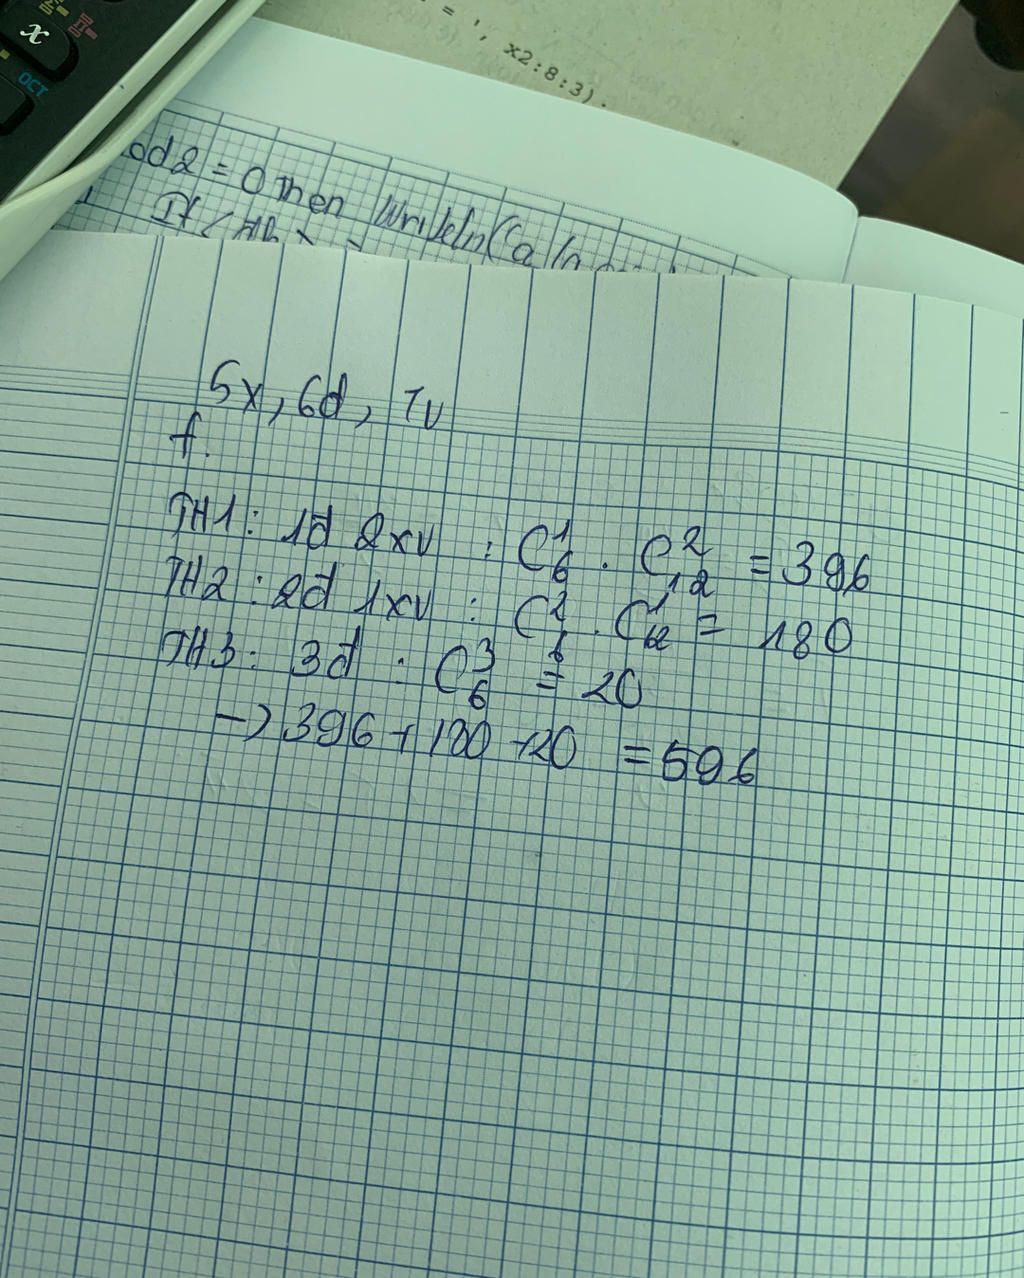 x
OCT
= ', x2:8:3).
od2 = 0 then writeln('a
If <
5x, 6đ, 7v
f.
TH1: 1đ 2xv : C¹₆ . C²₁₂ = 396
TH2: 2đ 1xv : C²₆ . C¹₁₂ = 180
TH3: 3đ : C³₆ = 20
-> 396 + 180 + 20 = 596